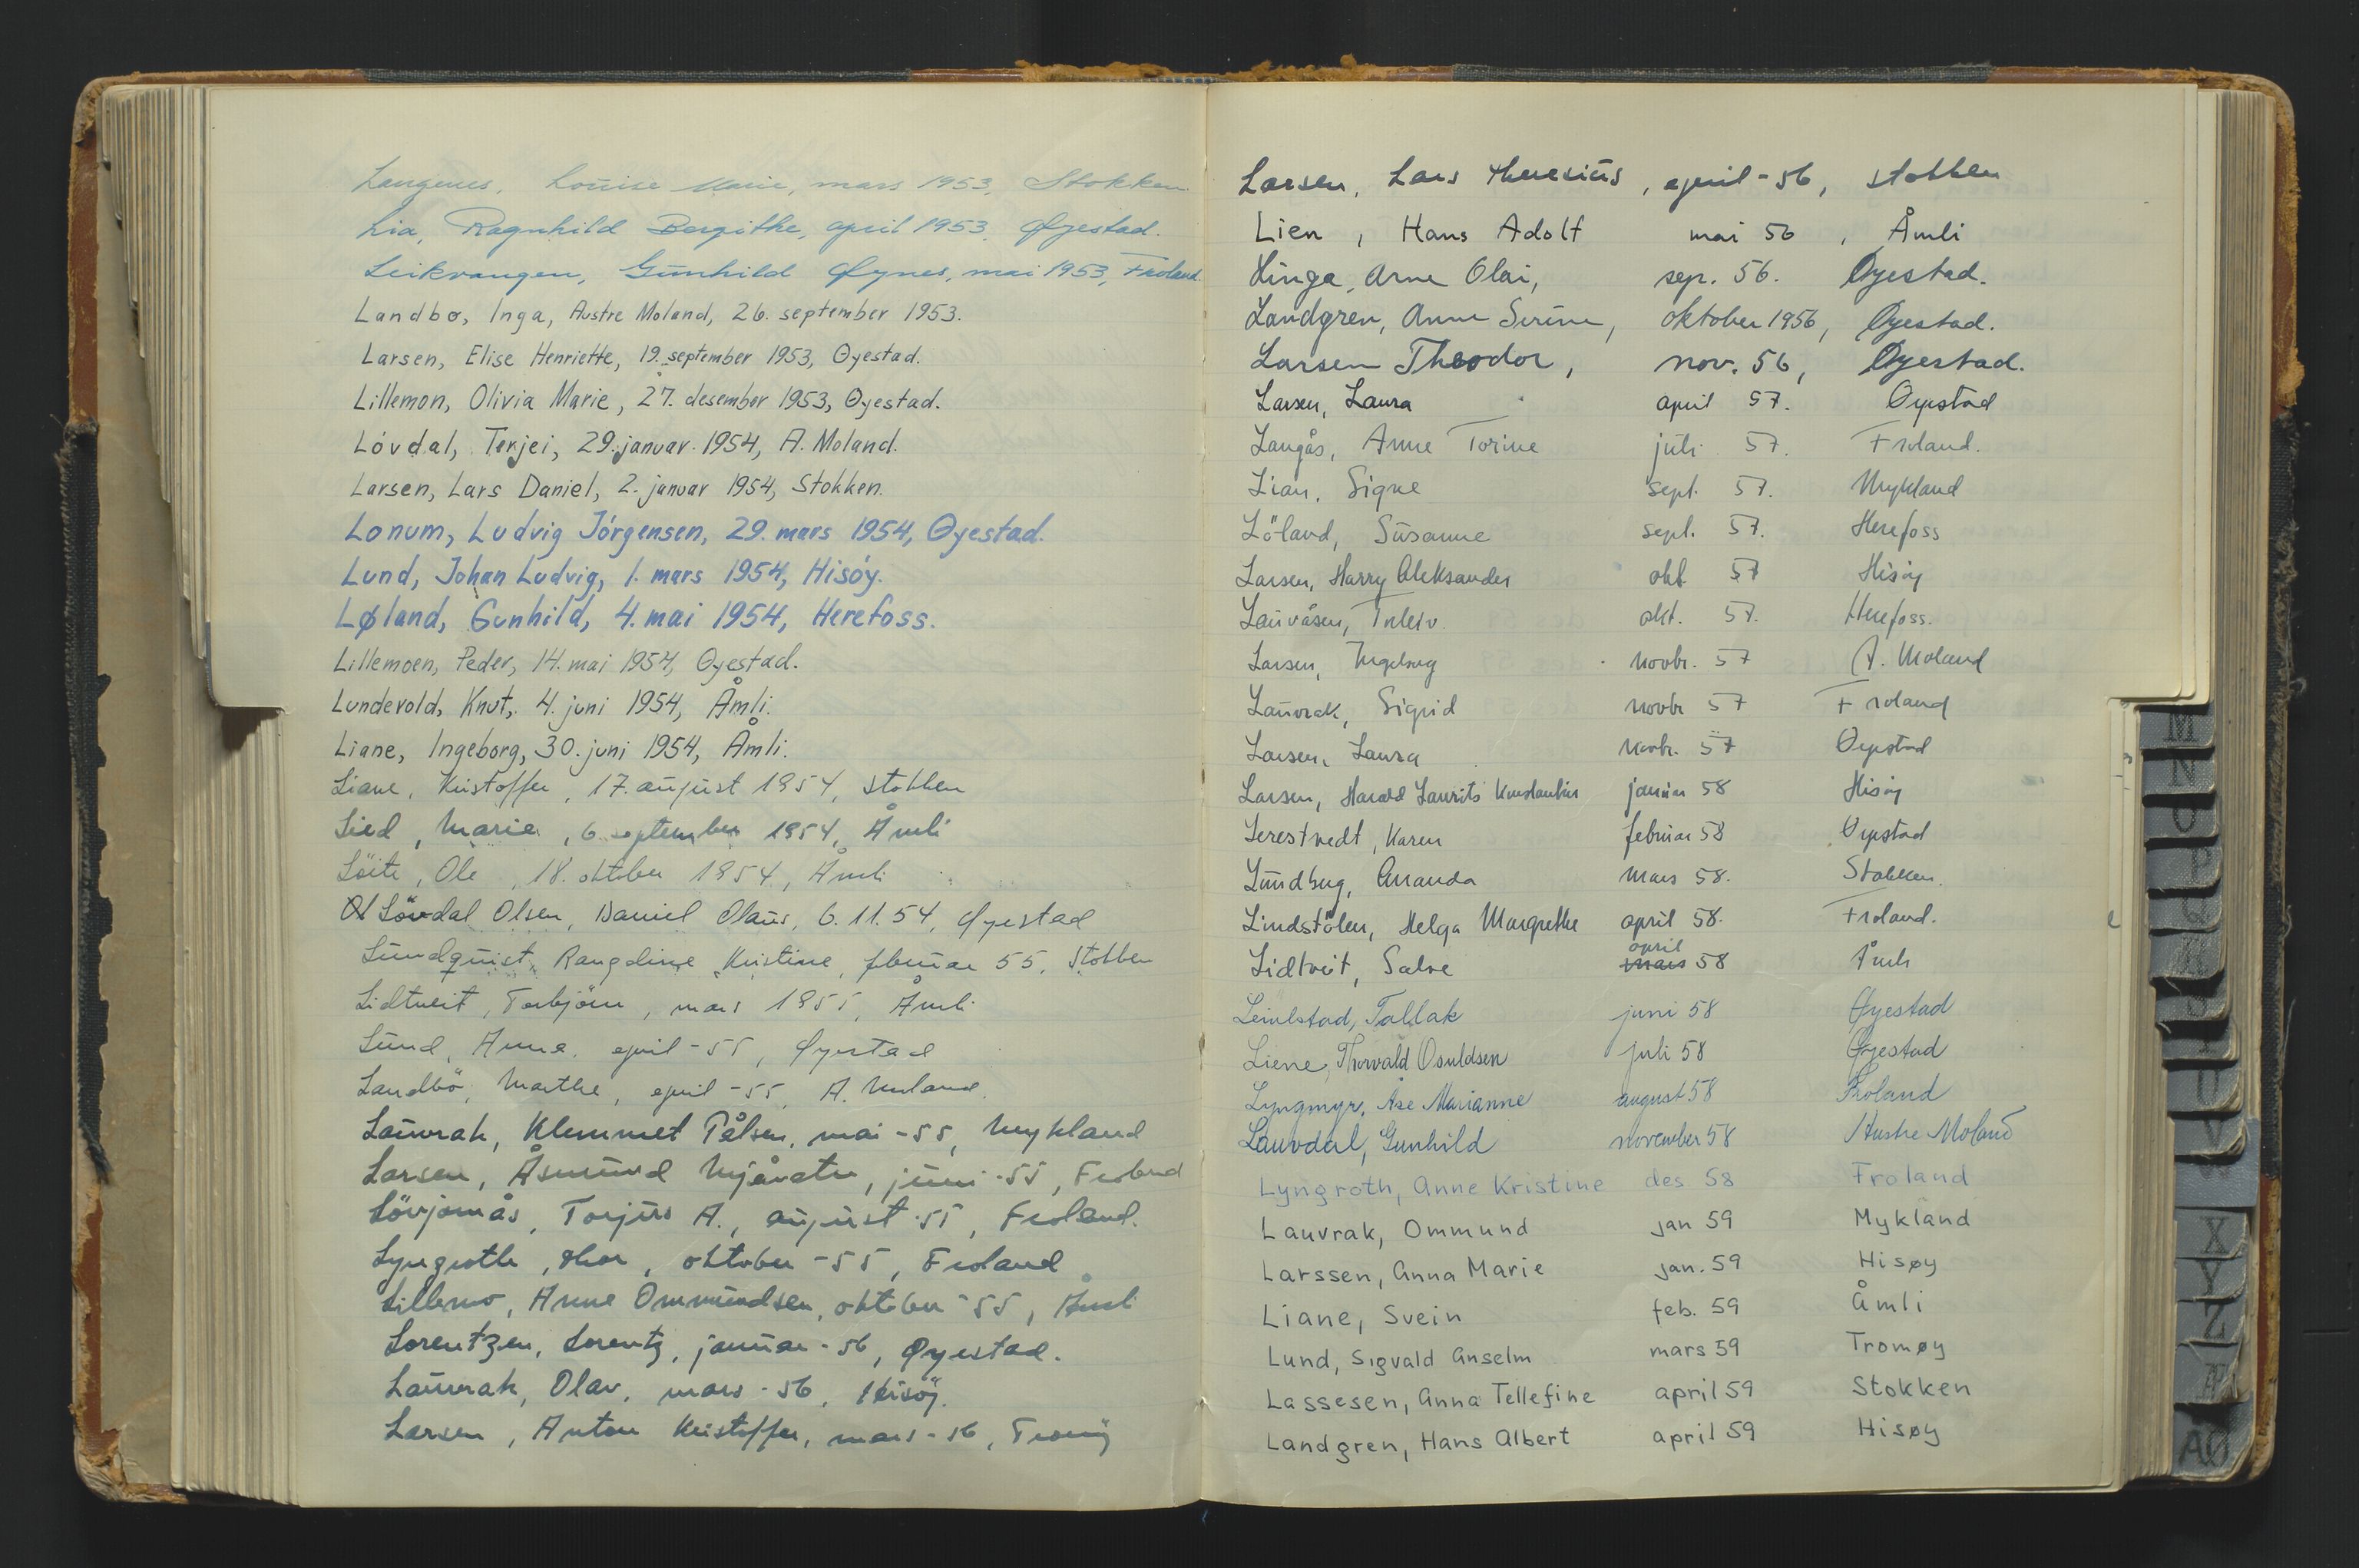 Langenes, Louise Marie, mars 1953, Stokken
Lia, Ragnhild Bergithe, april 1953, Øyestad.
Leikvangen, Gunhild Øynes, mai 1953, Froland
Landbø, Inga, Austre Moland, 26. september 1953.
Larsen, Elise Henriette, 19. september 1953, Øyestad.
Lillemon, Olivia Marie, 27. desember 1953, Øyestad.
Lóvdal, Terjei, 29. januar 1954, A. Moland.
Larsen, Lars Daniel, 2. januar 1954, Stokken.
Lonum, Ludvig Jórgensen, 29. mars 1954, Øyestad.
Lund, Johan Ludvig, 1. mars 1954, Hisóy.
Løland, Gunhild, 4. mai 1954, Herefoss.
Lillemoen, Peder, 14. mai 1954, Øyestad.
Lundevold, Knut, 4. juni 1954, Åmli.
Liane, Ingeborg, 30. juni 1954, Åmli.
Liane, Kristoffer, 17. august 1954, Stokken
Lied, Marie, 6. september 1954, Åmli
Löite, Ole, 18. oktober 1954, Åmli
Lövdal Olsen, Daniel Olaus, 6.11.54, Øyestad
Lundquist, Rangdine Kristine, februar 55, Stokken
Lidtveit, Torbjörn, mars 1955, Åmli
Lund, Anna, april -55, Øyestad
Landbö, Marthe, april -55, A. Moland.
Lauvrak, Klemmet Pålsen, mai -55, Mykland
Larsen, Åsmund Mjåvatn, juni -55, Froland
Lövjomås, Torjus A., august -55, Froland.
Lyngroth, Thor, oktober -55, Froland
Lillemo, Anne Ommundsen, oktober -55, Åmli
Lorentzen, Lorentz, januar -56, Øyestad.
Lauvrak, Olav, mars -56, Hisöy.
Larsen, Anton Kristoffer, mars -56, Tromöy
Larsen, Lars Theresius, april -56, Stokken
Lien, Hans Adolf mai 56, Åmli
Linga, Arne Olai, sep. 56. Øyestad.
Landgren, Anne Serine, oktober 1956, Øyestad.
Larsen Theodor, nov. 56, Øyestad.
Larsen, Laura april 57. Øyestad
Langås, Anne Torine juli 57. Froland.
Lian, Signe sept. 57. Mykland
Löland, Susanne sept. 57. Herefoss
Larsen, Harry Aleksander okt. 57 Hisøy
Lauvåsen, Talleiv okt. 57. Herefoss.
Larsen, Ingeborg novbr. 57 A. Moland
Lauvrak, Sigrid novbr 57 Froland
Larsen, Laura novbr. 57 Øyestad
Larsen, Harald Laurits Konstantin januar 58 Hisøy
Lerestvedt, Karen februar 58 Øyestad
Lundberg, Amanda mars 58. Stokken.
Lindstölen, Helga Margrethe april 58. Froland.
april
Lidtveit, Salve mars 58 Åmli
Leivlstad, Tallak juni 58 Øyestad
Liene, Thorvald Osuldsen juli 58 Øyestad
Lyngmyr, Åse Marianne august 58 Froland
Lauvdal, Gunhild november 58 Austre Moland
Lyngroth, Anne Kristine des 58 Froland
Lauvrak, Ommund jan 59 Mykland
Larssen, Anna Marie jan. 59 Hisøy
Liane, Svein feb. 59 Åmli
Lund, Sigvald Anselm mars 59 Tromøy
Lassesen, Anna Tellefine april 59 Stokken
Landgren, Hans Albert april 59 Hisøy
M
N
O
P
Q
R
S
T
U
V
X
Y
Z
Æ
AØ